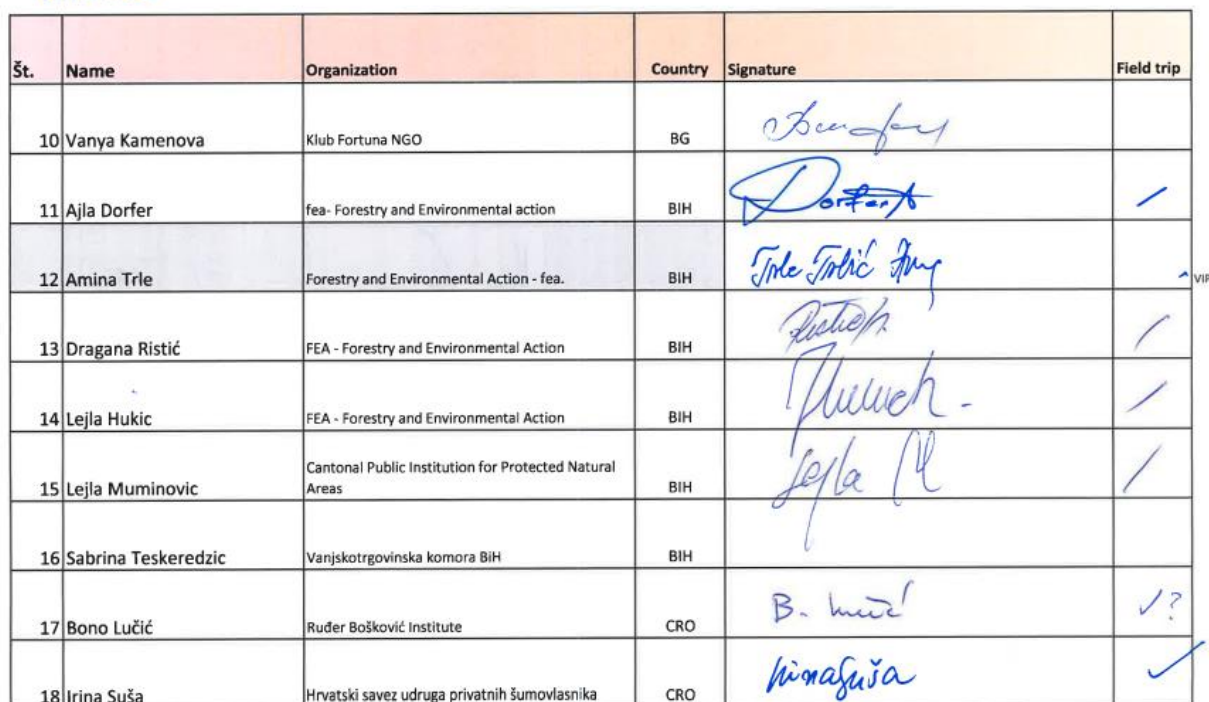 Št. Name Organization Country Signature Field trip
10 Vanya Kamenova Klub Fortuna NGO BG
11 Ajla Dorfer fea- Forestry and Environmental action BIH Dorfer A /
12 Amina Trle Forestry and Environmental Action - fea. BIH Trle Trlić VIP
13 Dragana Ristić FEA - Forestry and Environmental Action BIH /
14 Lejla Hukic FEA - Forestry and Environmental Action BIH /
Cantonal Public Institution for Protected Natural
15 Lejla Muminovic Areas BIH Lejla M /
16 Sabrina Teskeredzic Vanjskotrgovinska komora BiH BIH
17 Bono Lučić Ruđer Bošković Institute CRO B. Lučić ✓?
18 Irina Suša Hrvatski savez udruga privatnih šumovlasnika CRO Irina Suša ✓